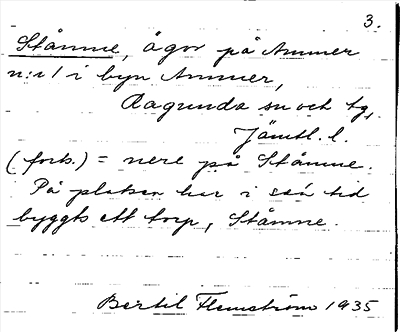 3.
Ståmne, ägor på Ammer
n:r 1 i byn Ammer,
Ragunda sn och tg,
Jämtl. l.
(forts.) = nere på Ståmne.
På platsen har i sen tid
byggts ett torp, Ståmne.
Bertil Flemström 1935